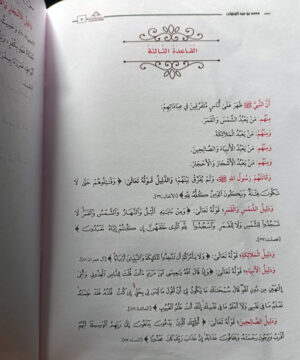 القاعدة الثالثة
أن النبي ﷺ ظهر على أناس متفرقين في عباداتهم:
منهم: من يعبد الشمس والقمر.
ومنهم: من يعبد الملائكة.
ومنهم: من يعبد الأنبياء والصالحين.
ومنهم: من يعبد الأشجار والأحجار.
وقاتلهم رسول الله ﷺ ولم يفرق بينهم؛ والدليل قوله تعالى: ﴿ وقاتلوهم حتى لا
تكون فتنة ويكون الدين كله لله ﴾ [الأنفال: ٣٩].
ودليل الشمس والقمر؛ قوله تعالى: ﴿ ومن آياته الليل والنهار والشمس والقمر لا
تسجدوا للشمس ولا للقمر واسجدوا لله الذي خلقهن إن كنتم إياه تعبدون ﴾
[فصلت: ٣٧].
ودليل الملائكة؛ قوله تعالى: ﴿ ولا يأمركم أن تتخذوا الملائكة والنبيين أربابا ﴾ [آل عمران: ٨٠].
ودليل الأنبياء؛ قوله تعالى: ﴿ وإذ قال الله يا عيسى ابن مريم أأنت قلت للناس اتخذوني وأمي
إلهين من دون الله قال سبحانك ما يكون لي أن أقول ما ليس لي بحق إن كنت قلته فقد علمته
تعلم ما في نفسي ولا أعلم ما في نفسك إنك أنت علام الغيوب ﴾
ودليل الصالحين؛ قوله تعالى: ﴿ أولئك الذين يدعون يبتغون إلى ربهم الوسيلة أيهم
أقرب ويرجون رحمته ويخافون عذابه إن عذاب ربك كان محذورا ﴾